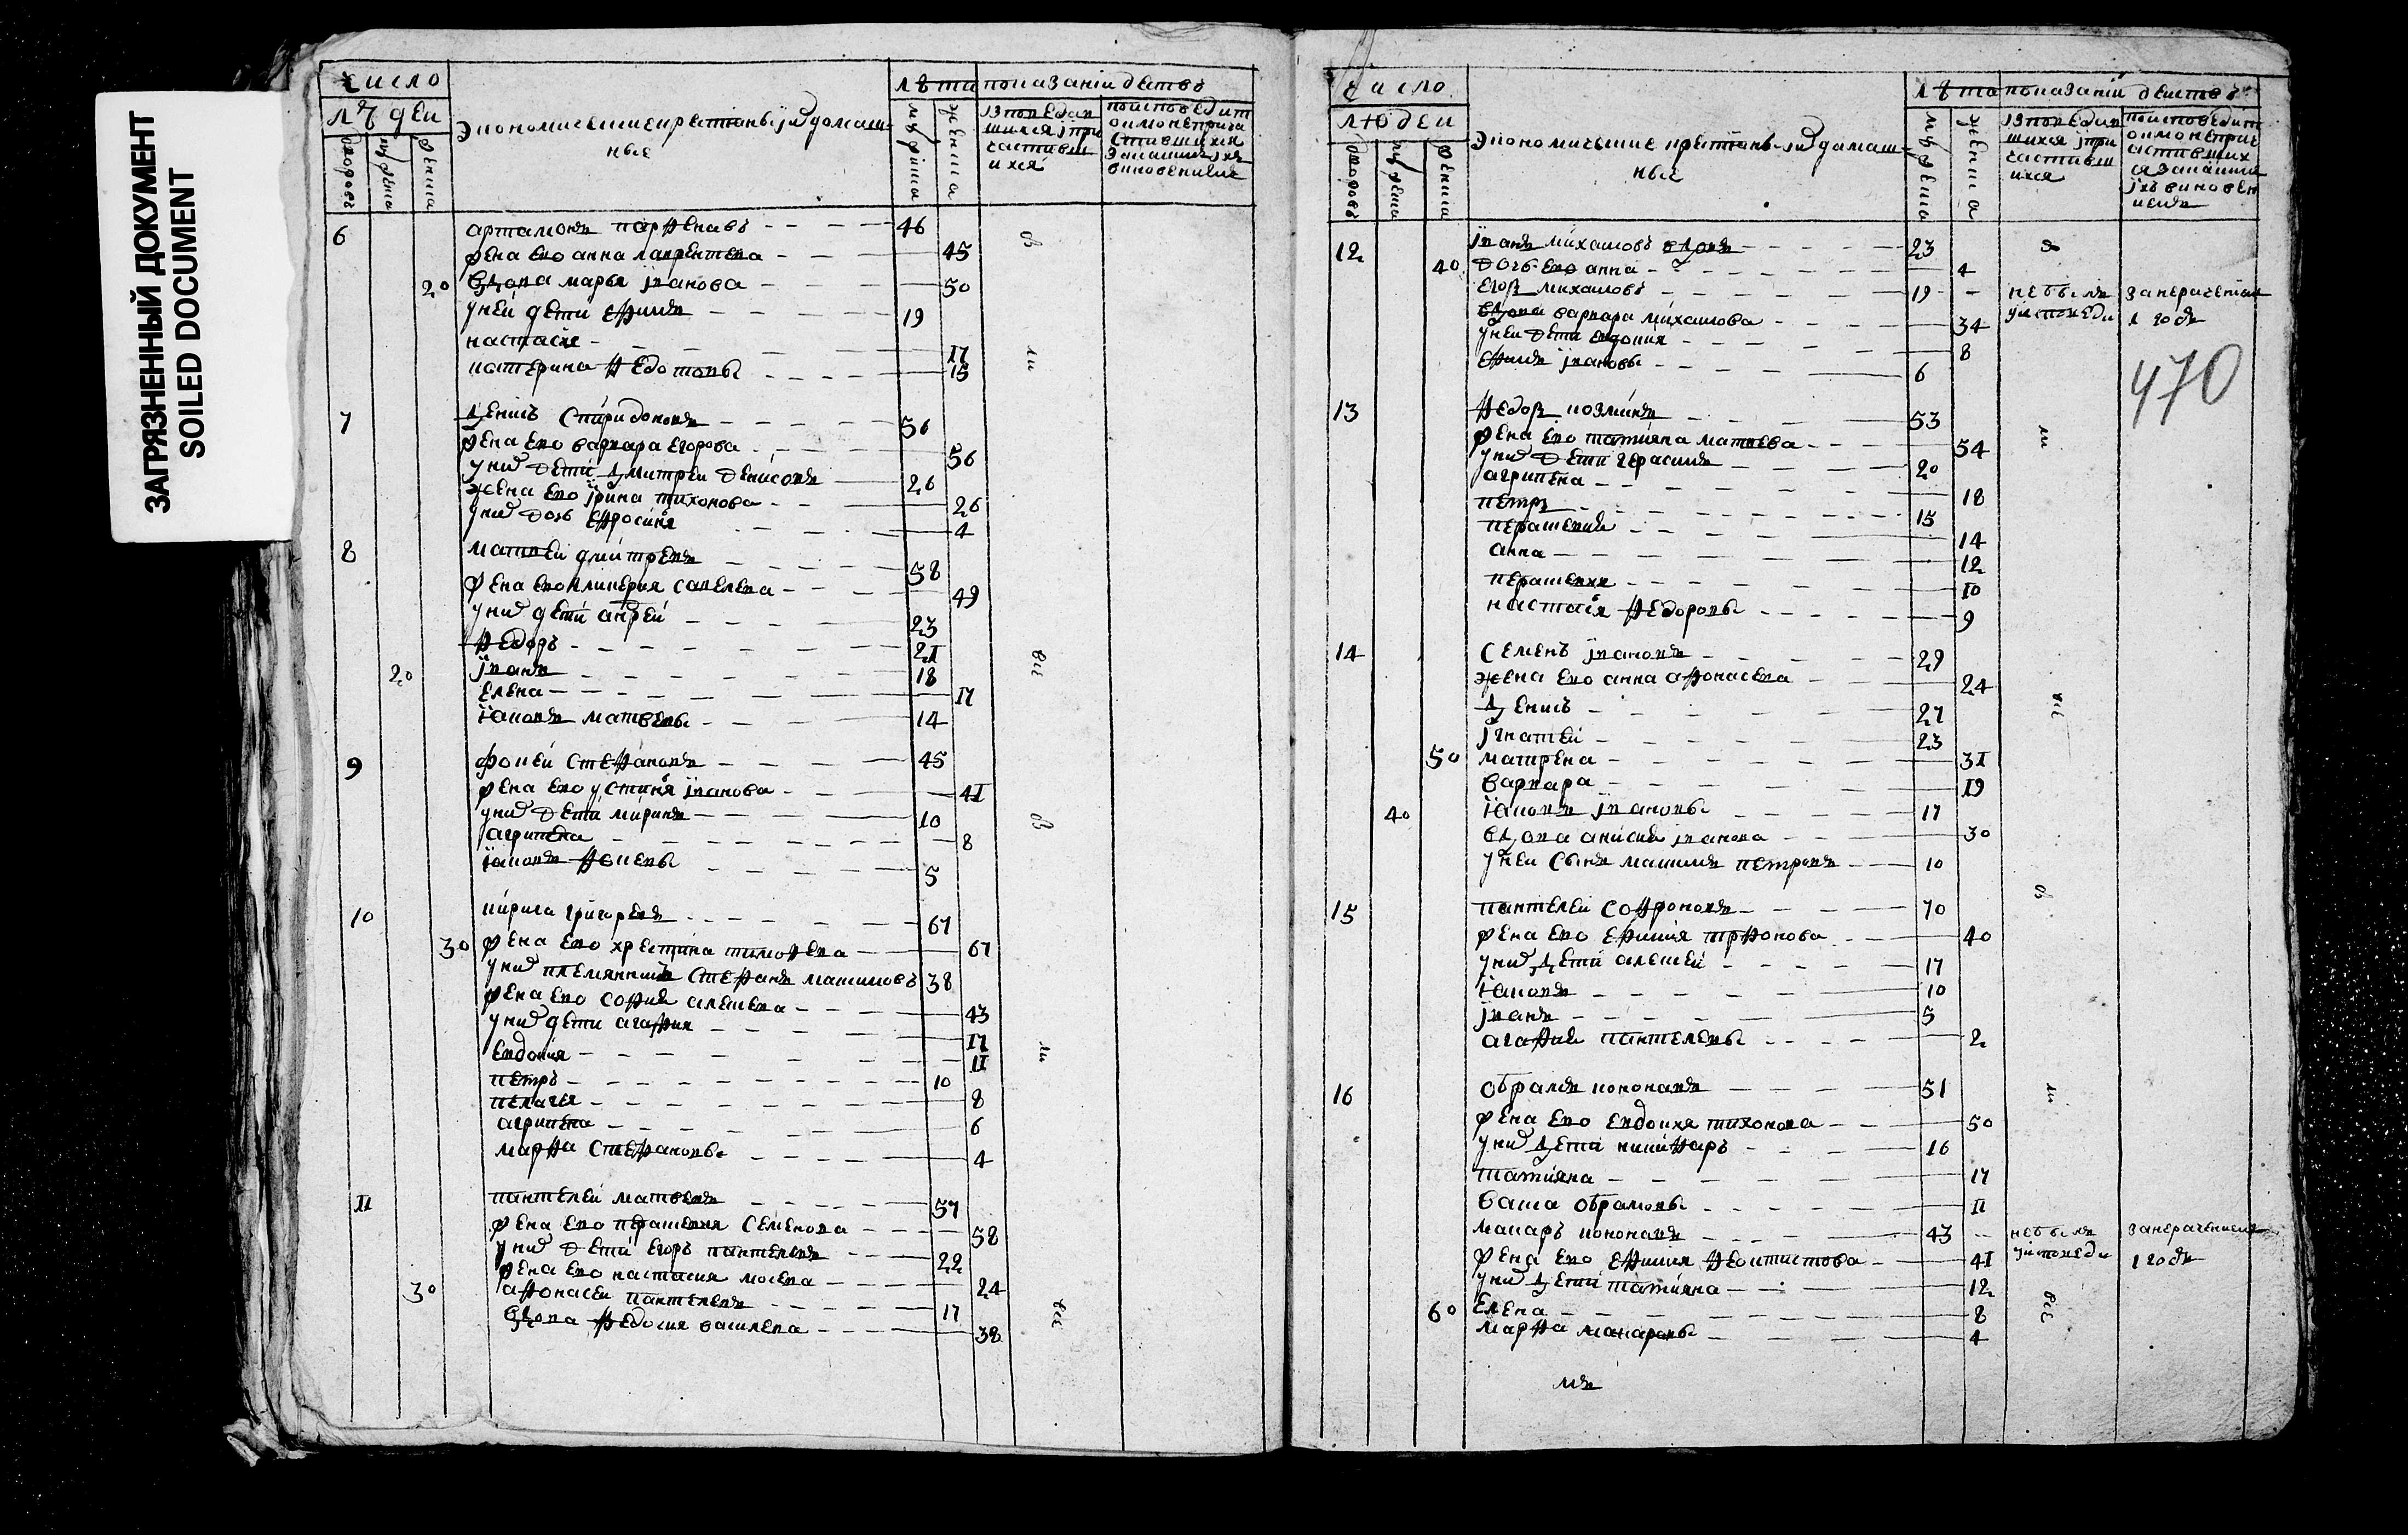 ЗАГРЯЗНЕННЫЙ ДОКУМЕНТ
SOILED DOCUMENT
число
людей
дворовъ
мужеска
женска
Экономические крестьяне и их домаш-
ные
лѣта
показанїи действъ
мужеска
женска
исповедав
шихся и при
частивш
ихся
по исповеди т
окмо неприча
стившихся
6 артамонъ парфеновъ 46
жена ево анна лаврентева 45
20 вдова марья иванова 50
у ней дети ефимъ 19
настасїя 17
катерина федотовы 15
7 денисъ спиридоновъ 56
жена ево варвара егорова 56
у них дети дмитреи денисовъ 26
жена ево ирина тихонова 26
у них дочь ефросинїя 4
8 матвеи дмитревъ 58
жена ево гликерия савелева 49
у них дети андреи 23
федоръ 21
20 иванъ 18
елена 17
яковъ матвевы 14
9 фокеи стефановъ 45
жена ево устинїя иванова 41
у них дети миронъ 10
агрипена 8
яковъ фокевы 5
10 кирила григоревъ 67
30 жена ево христина тимофева 67
у них племянникъ стефанъ максимовъ 38
жена ево софия алексева 43
у них дети агафия 17
евдокия 11
петръ 10
пелагея 8
агрипена 6
марфа стефановы 4
11 пантелеи матвеевъ 57
жена ево парасковия семенова 58
у них дети егоръ пантелевъ 22
жена ево настасия мосева 24
30 афонасеи пантелевъ 17
вдова федосия василева 38
всѣ
число
людеи
дворовъ
мужеска
женска
Экономические крестьянъ и их домаш-
ные
лѣта
показанїи действъ
мужеска
женска
исповедав
шихся и при
частивш
ихся
по исповеди т
окмо неприч
астивших
12 иванъ михаиловъ вдовъ 23
40 дочь ево анна 4
егоръ михаиловъ 19 не былъ за нерачением
у исповеди 1 годъ
вдова варвара михаилова 34
у неи дети евдокия 8
ефимъ ивановы 6
470
13 федоръ козминъ 53
жена ево татияна матвева 54
у них дети герасимъ 20
агрипена 18
петръ 15
парасковия 14
анна 12
парасковия 10
настасїя федоровы 9
14 семенъ ивановъ 29
жена ево анна афонасева 24
денисъ 27
игнатеи 23
50 матрена 31
варвара 19
40 яковъ ивановы 17
вдова анисия иванова 30
у неи сынъ максимъ петровъ 10
15 пантелеи софроновъ 70
жена ево ефимия трфонова 40
у них дети алексеи 17
яковъ 10
иванъ 5
агафия пантелевы 2
16 обрамъ кононовъ 51
жена ево евдокия тихонова 50
у них дети никифаръ 16
татияна 17
васа обрамовы 11
макаръ кононовъ 43 не былъ за нерачением
у исповеди 1 годъ
жена ево ефимия феоктистова 41
у них дети татияна 12
60 елена 8
марфа макаровы 4
всѣ